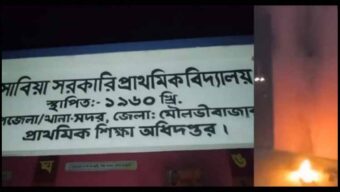 সাবিয়া সরকারি প্রাথমিক বিদ্যালয়
স্থাপিত:- ১৯৬০ খ্রি.
পজেলা/থানা-সদর, জেলা: মৌলভীবাজার
প্রাথমিক শিক্ষা অধিদপ্তর।
ঘ